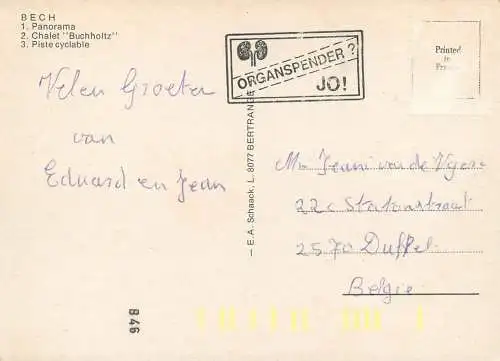 BECH
1. Panorama
2. Chalet "Buchholtz"
3. Piste cyclable
ORGANSPENDER?
JO!
Printed
in
Velen Groeten
van
Eduard en Jean
— E.A. Schaack, L. 8077 BERTRANGE
Jeani van de
22c Statiestraat
2570 Duffel
Belgie
846